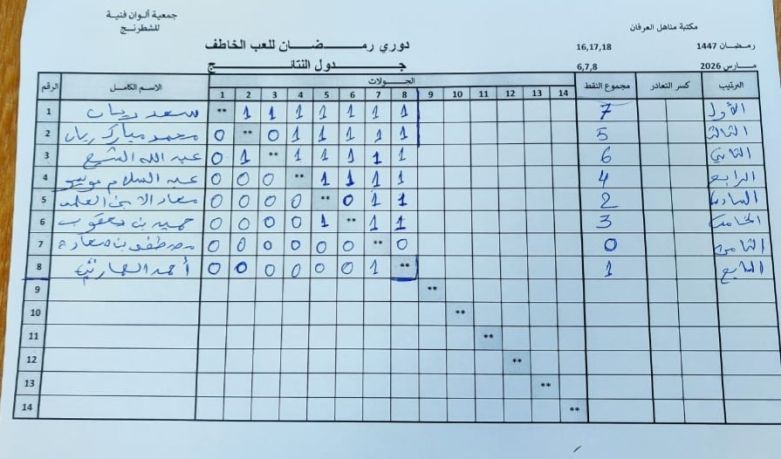 جمعية ألوان فنية
للشطرنج
مكتبة مناهل العرفان
دوري رمـــضـــان للعب الخاطف
16,17,18 رمـضـان 1447
جـــدول النتائـــج
6,7,8 مـــارس 2026
الرقم الاسم الكامـل الجـــولات مجموع النقط كسر التعادر الترتيب
1 2 3 4 5 6 7 8 9 10 11 12 13 14
1 سعد ريان ** 1 1 1 1 1 1 1 7 الأول
2 محمد مبارك ريان 0 ** 0 1 1 1 1 1 5 الثالث
3 عبد الله الشيخ 0 1 ** 1 1 1 1 1 6 الثاني
4 عبد السلام 0 0 0 ** 1 1 1 1 4 الرابع
5 معاد 0 0 0 0 ** 0 1 1 2 السادس
6 حميد بن يعقوب 0 0 0 0 1 ** 1 1 3 الخامس
7 مصطفى بن سعادة 0 0 0 0 0 0 ** 0 0 الثامن
8 أحمد 0 0 0 0 0 0 1 ** 1 السابع
9 **
10 **
11 **
12 **
13 **
14 **